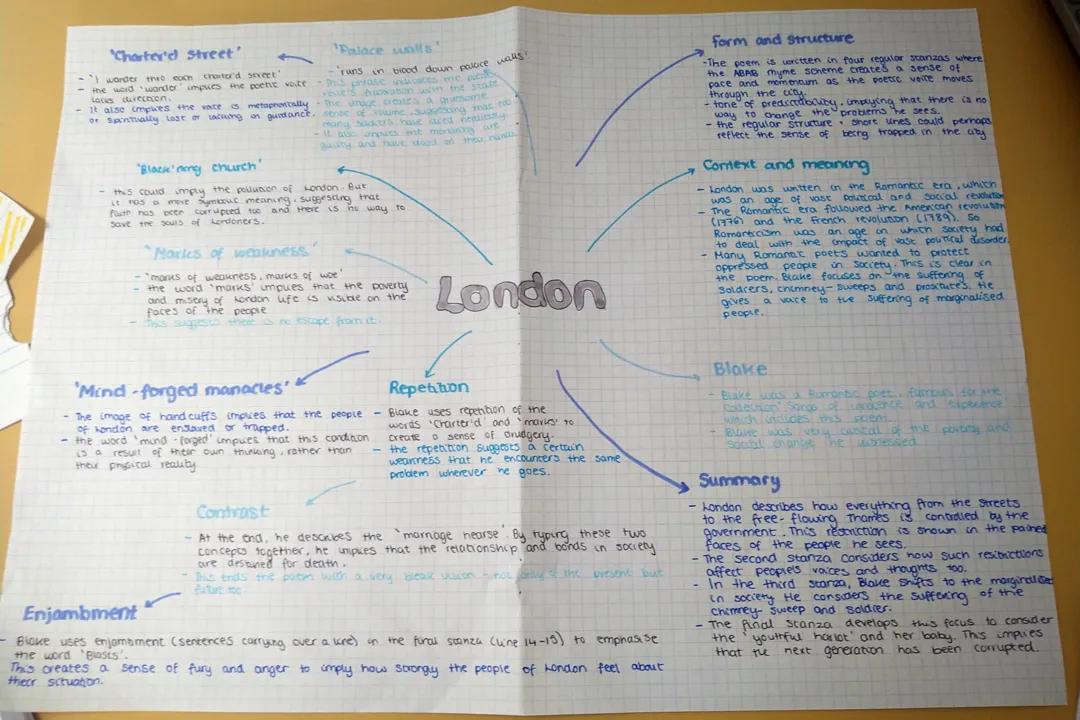 London
'Charter'd Street'
- 'I wander thro each charter'd street'
- the word 'wander' implies the poetic voice
lacks direction.
- It also implies the voice is metaphorically
or spiritually lost or lacking on guidance.
'Palace walls'
- 'runs in blood down palace walls'
- This phrase indicates the poetic
voice's frustration with the state
- The image creates a gruesome
sense of volume, suggesting that too
many soldiers have died needlessly
- It also implies the monarchy are
guilty and have blood on their hands.
'Black'ning church'
- this could imply the pollution of London. But
it has a more symbolic meaning, suggesting that
faith has been corrupted too and there is no way to
save the souls of Londoners.
'Marks of weakness'
- 'marks of weakness, marks of woe'
- the word 'marks' implies that the poverty
and misery of London life is visible on the
faces of the people
- This suggests there is no escape from it.
'Mind-forged manacles'
- The image of handcuffs implies that the people
of London are enslaved or trapped.
- the word 'mind-forged' implies that this condition
is a result of their own thinking, rather than
their physical reality
Repetition
- Blake uses repetition of the
words 'Charter'd' and 'marks' to
create a sense of drudgery.
- the repetition suggests a certain
weariness that he encounters the same
problem wherever he goes.
Contrast
- At the end, he describes the 'marriage hearse'. By typing these two
concepts together, he implies that the relationship and bonds in society
are destined for death.
- This ends the poem with a very bleak vision - not only of the present but
future too.
Enjambment
- Blake uses enjambment (sentences carrying over a line) in the final stanza (line 14-15) to emphasise
the word 'Blasts'.
This creates a sense of fury and anger to imply how strongly the people of London feel about
their situation.
Form and structure
- The poem is written in four regular stanzas where
the ABAB rhyme scheme creates a sense of
pace and momentum as the poetic voice moves
through the city.
- tone of predictability, implying that there is no
way to change the problems he sees.
- the regular structure + short lines could perhaps
reflect the sense of being trapped in the city
Context and meaning
- London was written in the Romantic era, which
was an age of vast political and social revolution
- The Romantic era followed the American revolution
(1776) and the French revolution (1789). So
Romanticism was an age on which society had
to deal with the impact of vast political disorder.
- Many Romantic poets wanted to protect
oppressed people in society. This is clear in
the poem. Blake focuses on the suffering of
soldiers, chimney-sweeps and prostitutes. He
gives a voice to the suffering of marginalised
people.
Blake
- Blake was a Romantic poet, famous for the
collection Songs of Innocence and Experience
which includes this poem.
- Blake was very critical of the poverty and
social change he witnessed.
Summary
- London describes how everything from the streets
to the free-flowing Thames is controlled by the
government. This restriction is shown in the pained
faces of the people he sees.
- The second stanza considers how such restrictions
affect people's voices and thoughts too.
- In the third stanza, Blake shifts to the marginalised
in society. He considers the suffering of the
chimney-sweep and soldier.
- The final stanza develops this focus to consider
the 'youthful harlot' and her baby. This implies
that the next generation has been corrupted.